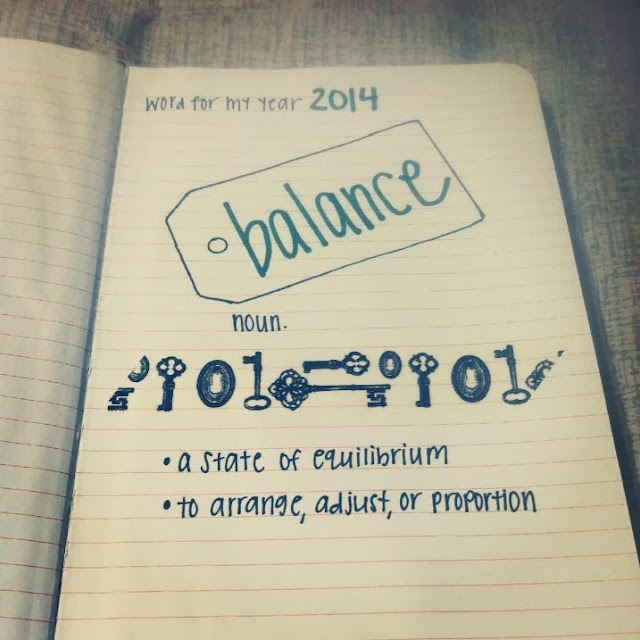 word for my year 2014
balance
noun.
• a state of equilibrium
• to arrange, adjust, or proportion